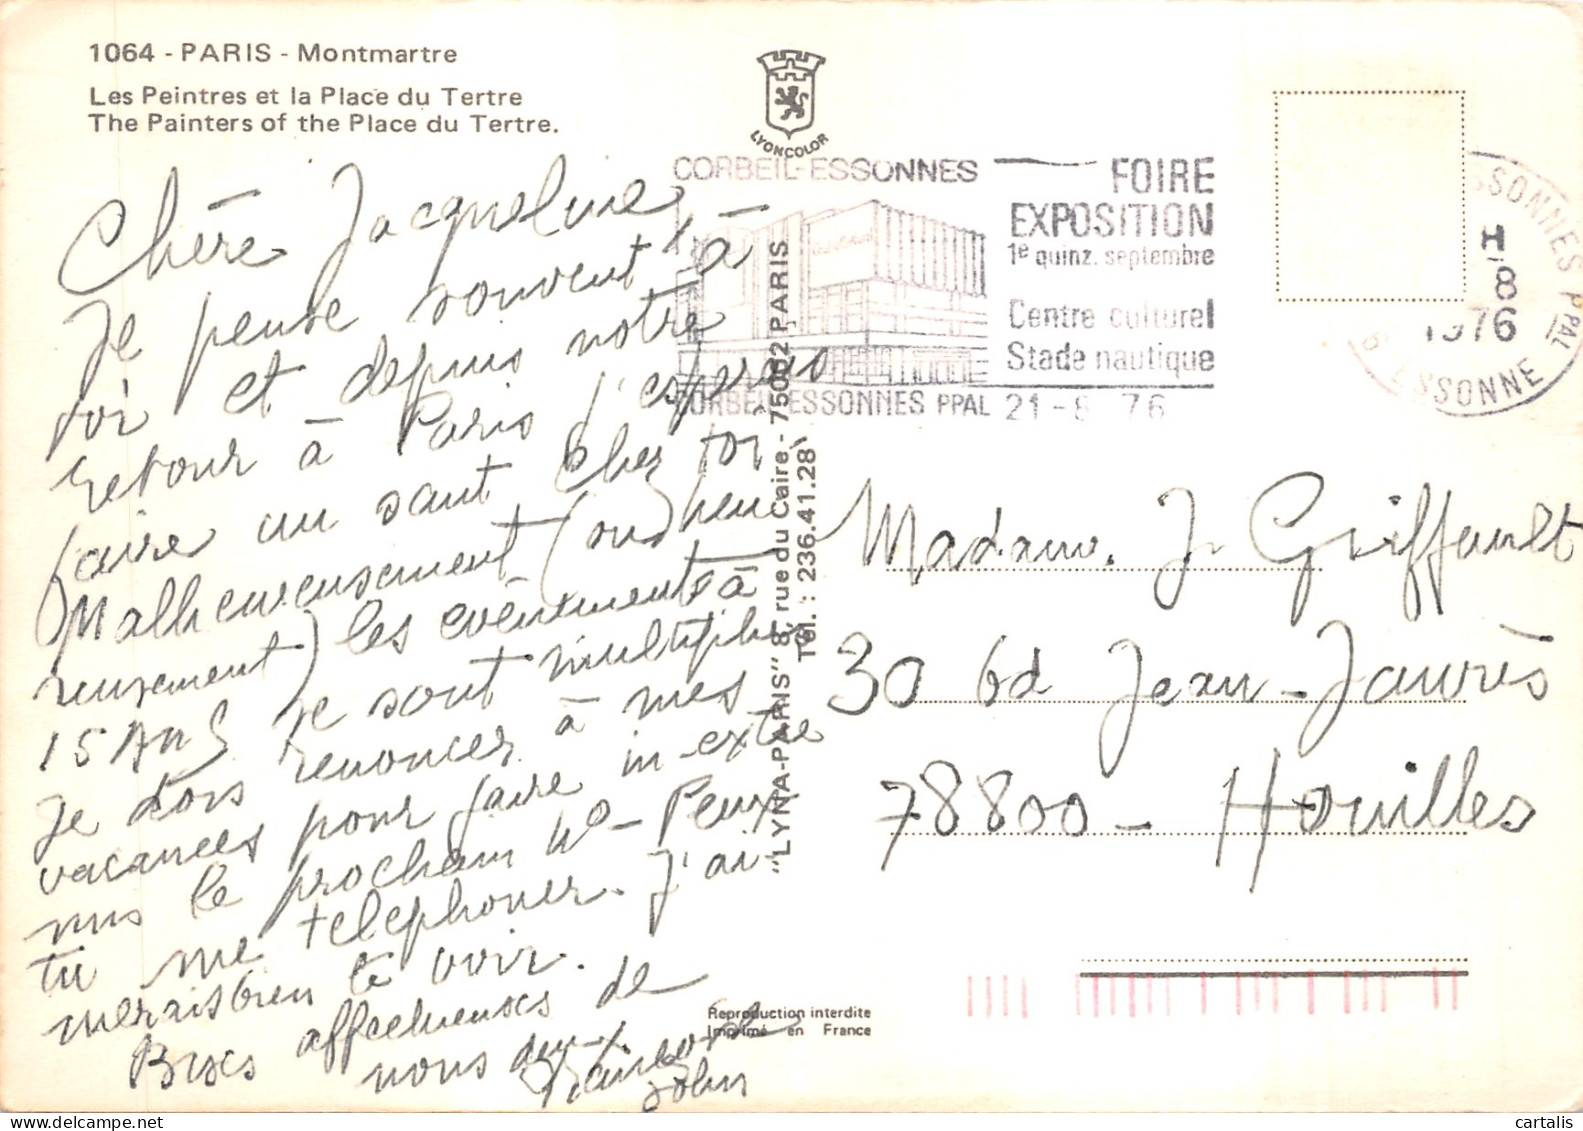 1064 - PARIS - Montmartre
Les Peintres et la Place du Tertre
The Painters of the Place du Tertre.
LYONCOLOR
CORBEIL-ESSONNES
FOIRE
EXPOSITION
1e quinz. septembre
Centre culturel
Stade nautique
CORBEIL-ESSONNES PPAL 21-8 76
SSONNES PPAL
H
8
1976
ESSONNE
Chère Jacqueline,
Je pense souvent à
toi et depuis notre
retour à Paris j'espérais
faire un saut chez toi
Malheureusement (ou heu
reusement) les événements à
15 ANS se sont multipliés
Je dois renoncer à mes
vacances pour faire in-extre
mis le prochain No - Peux
tu me téléphoner. J'ai
merais bien te voir.
Bises affectueuses de
nous deux.
John
"LYNA-PARIS" 8, rue du Caire - 75002 PARIS
Tél. : 236.41.28
Madame. J Griffault
30 bd Jean-Jaurès
78800 - Houilles
Reproduction interdite
Imprimé en France
cartalis